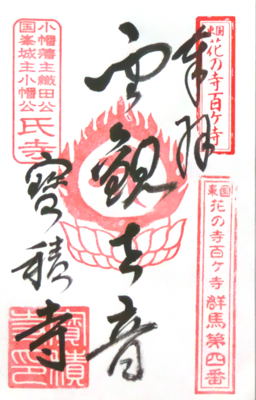 東国花の寺百ケ寺
奉拝
東国花の寺百ケ寺 群馬第四番
観世音
小幡藩主織田公
国峯城主小幡公
氏寺
寶積寺
寶積寺印